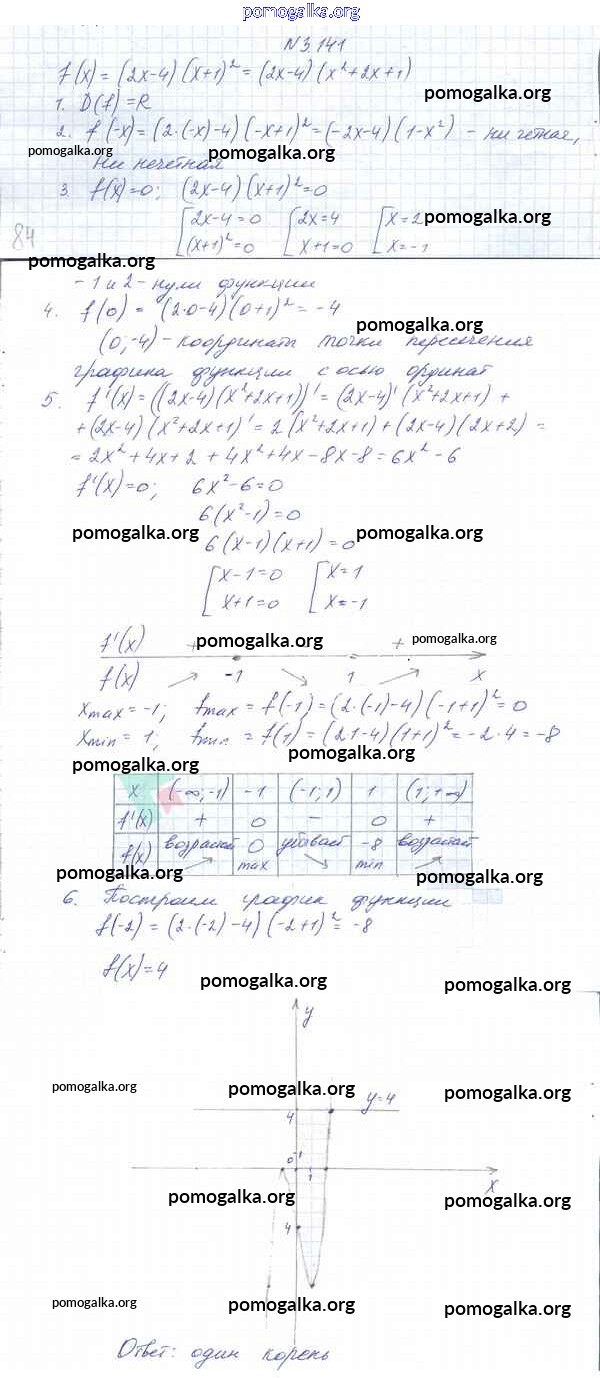 pomogalka.org
N 3.141
f(x) = (2x-4)(x+1)² = (2x-4)(x²+2x+1)
pomogalka.org
1. D(f) = R
2. f(-x) = (2·(-x)-4)(-x+1)² = (-2x-4)(1-x²) - ни четная,
pomogalka.org pomogalka.org
ни нечетная
3. f(x)=0; (2x-4)(x+1)²=0
[2x-4=0 [2x=4 [x=2
pomogalka.org
(x+1)²=0 x+1=0 x=-1
84
pomogalka.org
-1 и 2 - нули функции
4. f(0) = (2·0-4)(0+1)² = -4
pomogalka.org
(0;-4) - координата точки пересечения
графика функции с осью ординат
5. f'(x) = ((2x-4)(x²+2x+1))' = (2x-4)'(x²+2x+1) +
+(2x-4)(x²+2x+1)' = 2(x²+2x+1)+(2x-4)(2x+2) =
= 2x²+4x+2+4x²+4x-8x-8 = 6x²-6
f'(x)=0; 6x²-6=0
6(x²-1)=0
pomogalka.org pomogalka.org
6(x-1)(x+1)=0
[x-1=0 [x=1
x+1=0 x=-1
f'(x) + pomogalka.org - + pomogalka.org
f(x) -1 1 x
xmax = -1; fmax = f(-1) = (2·(-1)-4)(-1+1)² = 0
xmin = 1; fmin = f(1) = (2·1-4)(1+1)² = -2·4 = -8
pomogalka.org pomogalka.org
x (-∞;-1) -1 (-1;1) 1 (1;+∞)
f'(x) + 0 - 0 +
f(x) возрастает 0 убывает -8 возрастает
max min
pomogalka.org pomogalka.org pomogalka.org
6. Построим график функции
f(-2) = (2·(-2)-4)(-2+1)² = -8
f(x)=4
pomogalka.org pomogalka.org
y
pomogalka.org pomogalka.org pomogalka.org
4 y=4
0 1 1 x
pomogalka.org pomogalka.org
4
pomogalka.org pomogalka.org pomogalka.org
Ответ: один корень